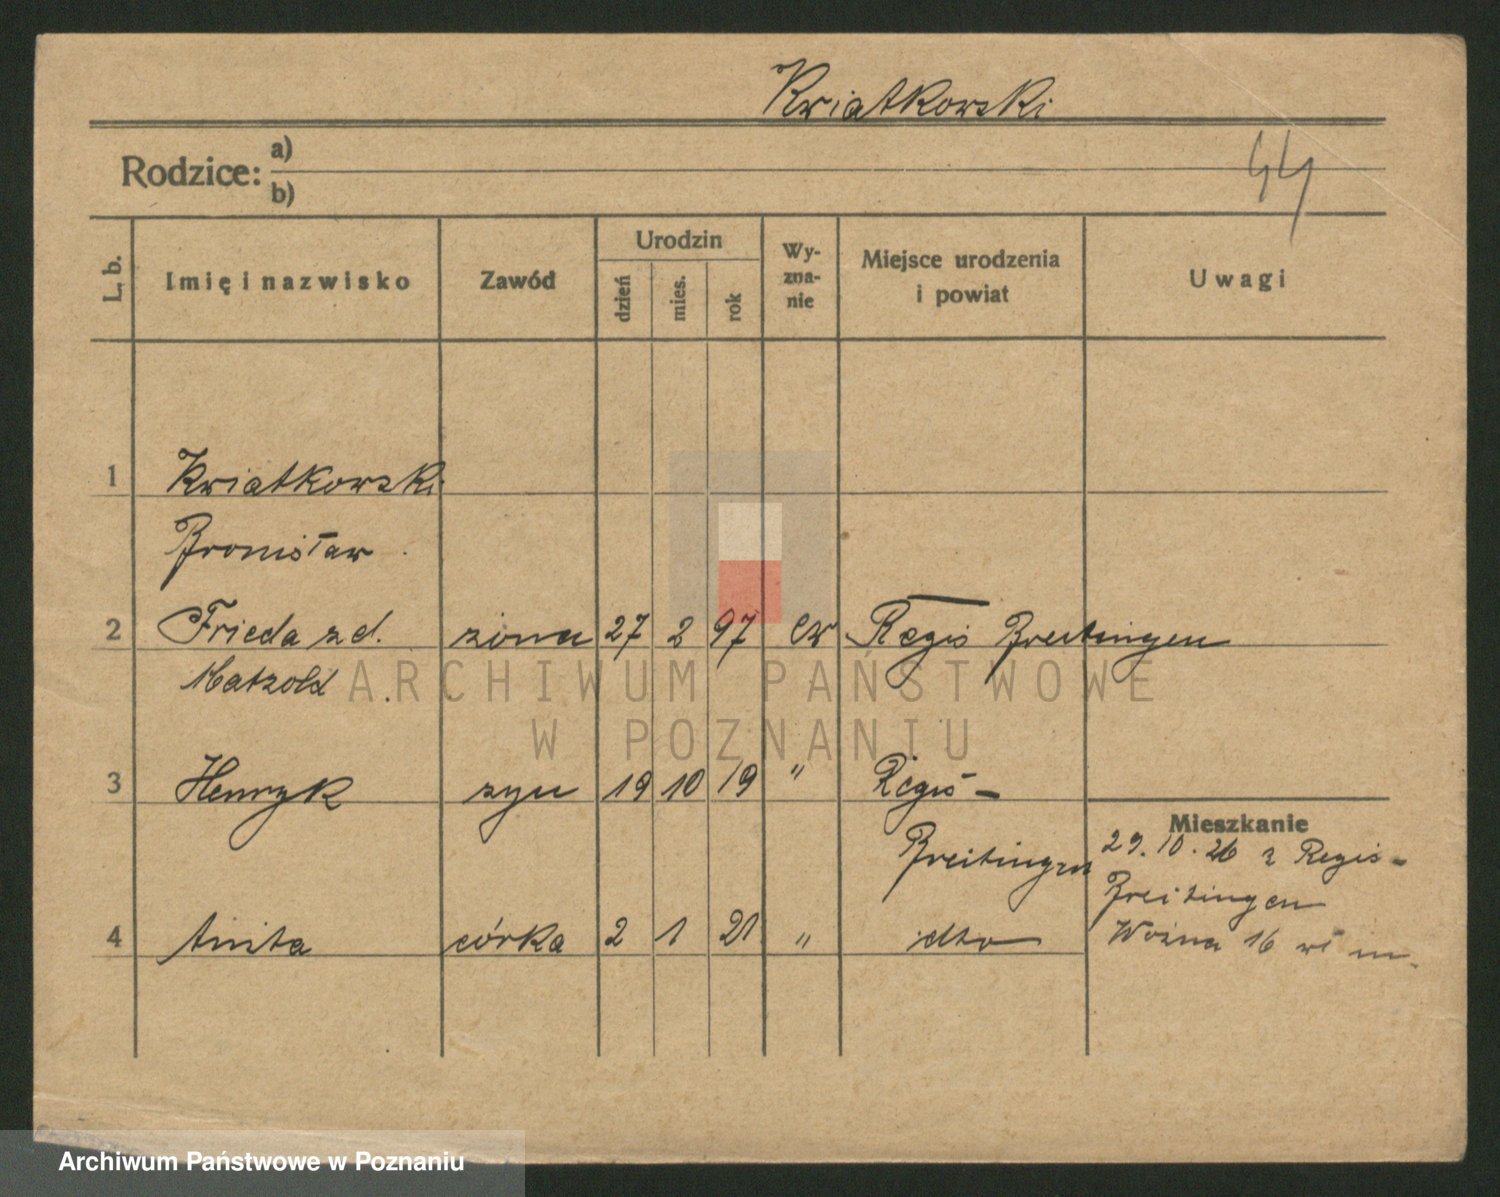 Kwiatkowski
Rodzice: a)
b)
44
L. b.
Imię i nazwisko
Zawód
Urodzin
dzień
mies.
rok
Wy-
zna-
nie
Miejsce urodzenia
i powiat
Uwagi
1 Kwiatkowski
Bronisław
2 Frieda z d. żona 27 2 97 ew Regis Breitingen
Matzold
3 Henryk syn 19 10 19 " Regis-
Breitingen
Mieszkanie
29.10.26 z Regis-
Breitingen
Woźna 16 wł m.
4 Anita córka 2 1 21 " dto
ARCHIWUM PAŃSTWOWE
W POZNANIU
Archiwum Państwowe w Poznaniu